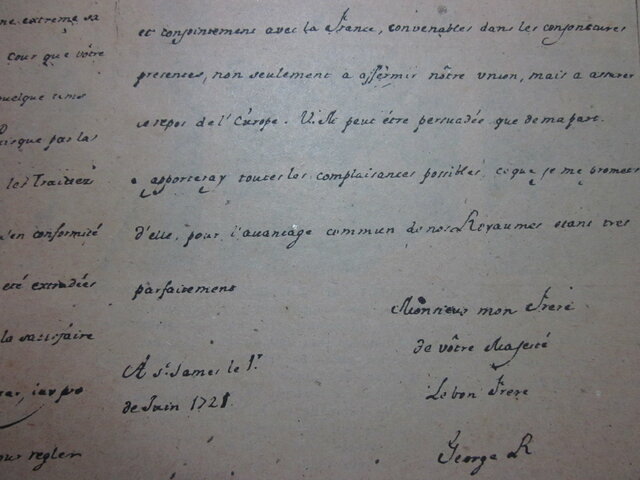 ne extreme sa
Cour que vôtre
uelque tems
isque par las
les Traittez
u'en conformité
été extradées
la satisfaire
rar, iay pro
our regler
et conjointement avec la France, convenables dans les conjonctures
presentes, non seulement a affermir nôtre union, mais a assurer
le repos de l'Europe. V.M. peut étre persuadée que de ma part
j'apporteray toutes les complaisances possibles, ce que je me promets
d'elle, pour l'avantage commun de nos Royaumes etant tres
parfaitement
Monsieur mon Frere
de vôtre Majesté
Le bon Frere
George R
A St. James le 1r.
de Juin 1721.